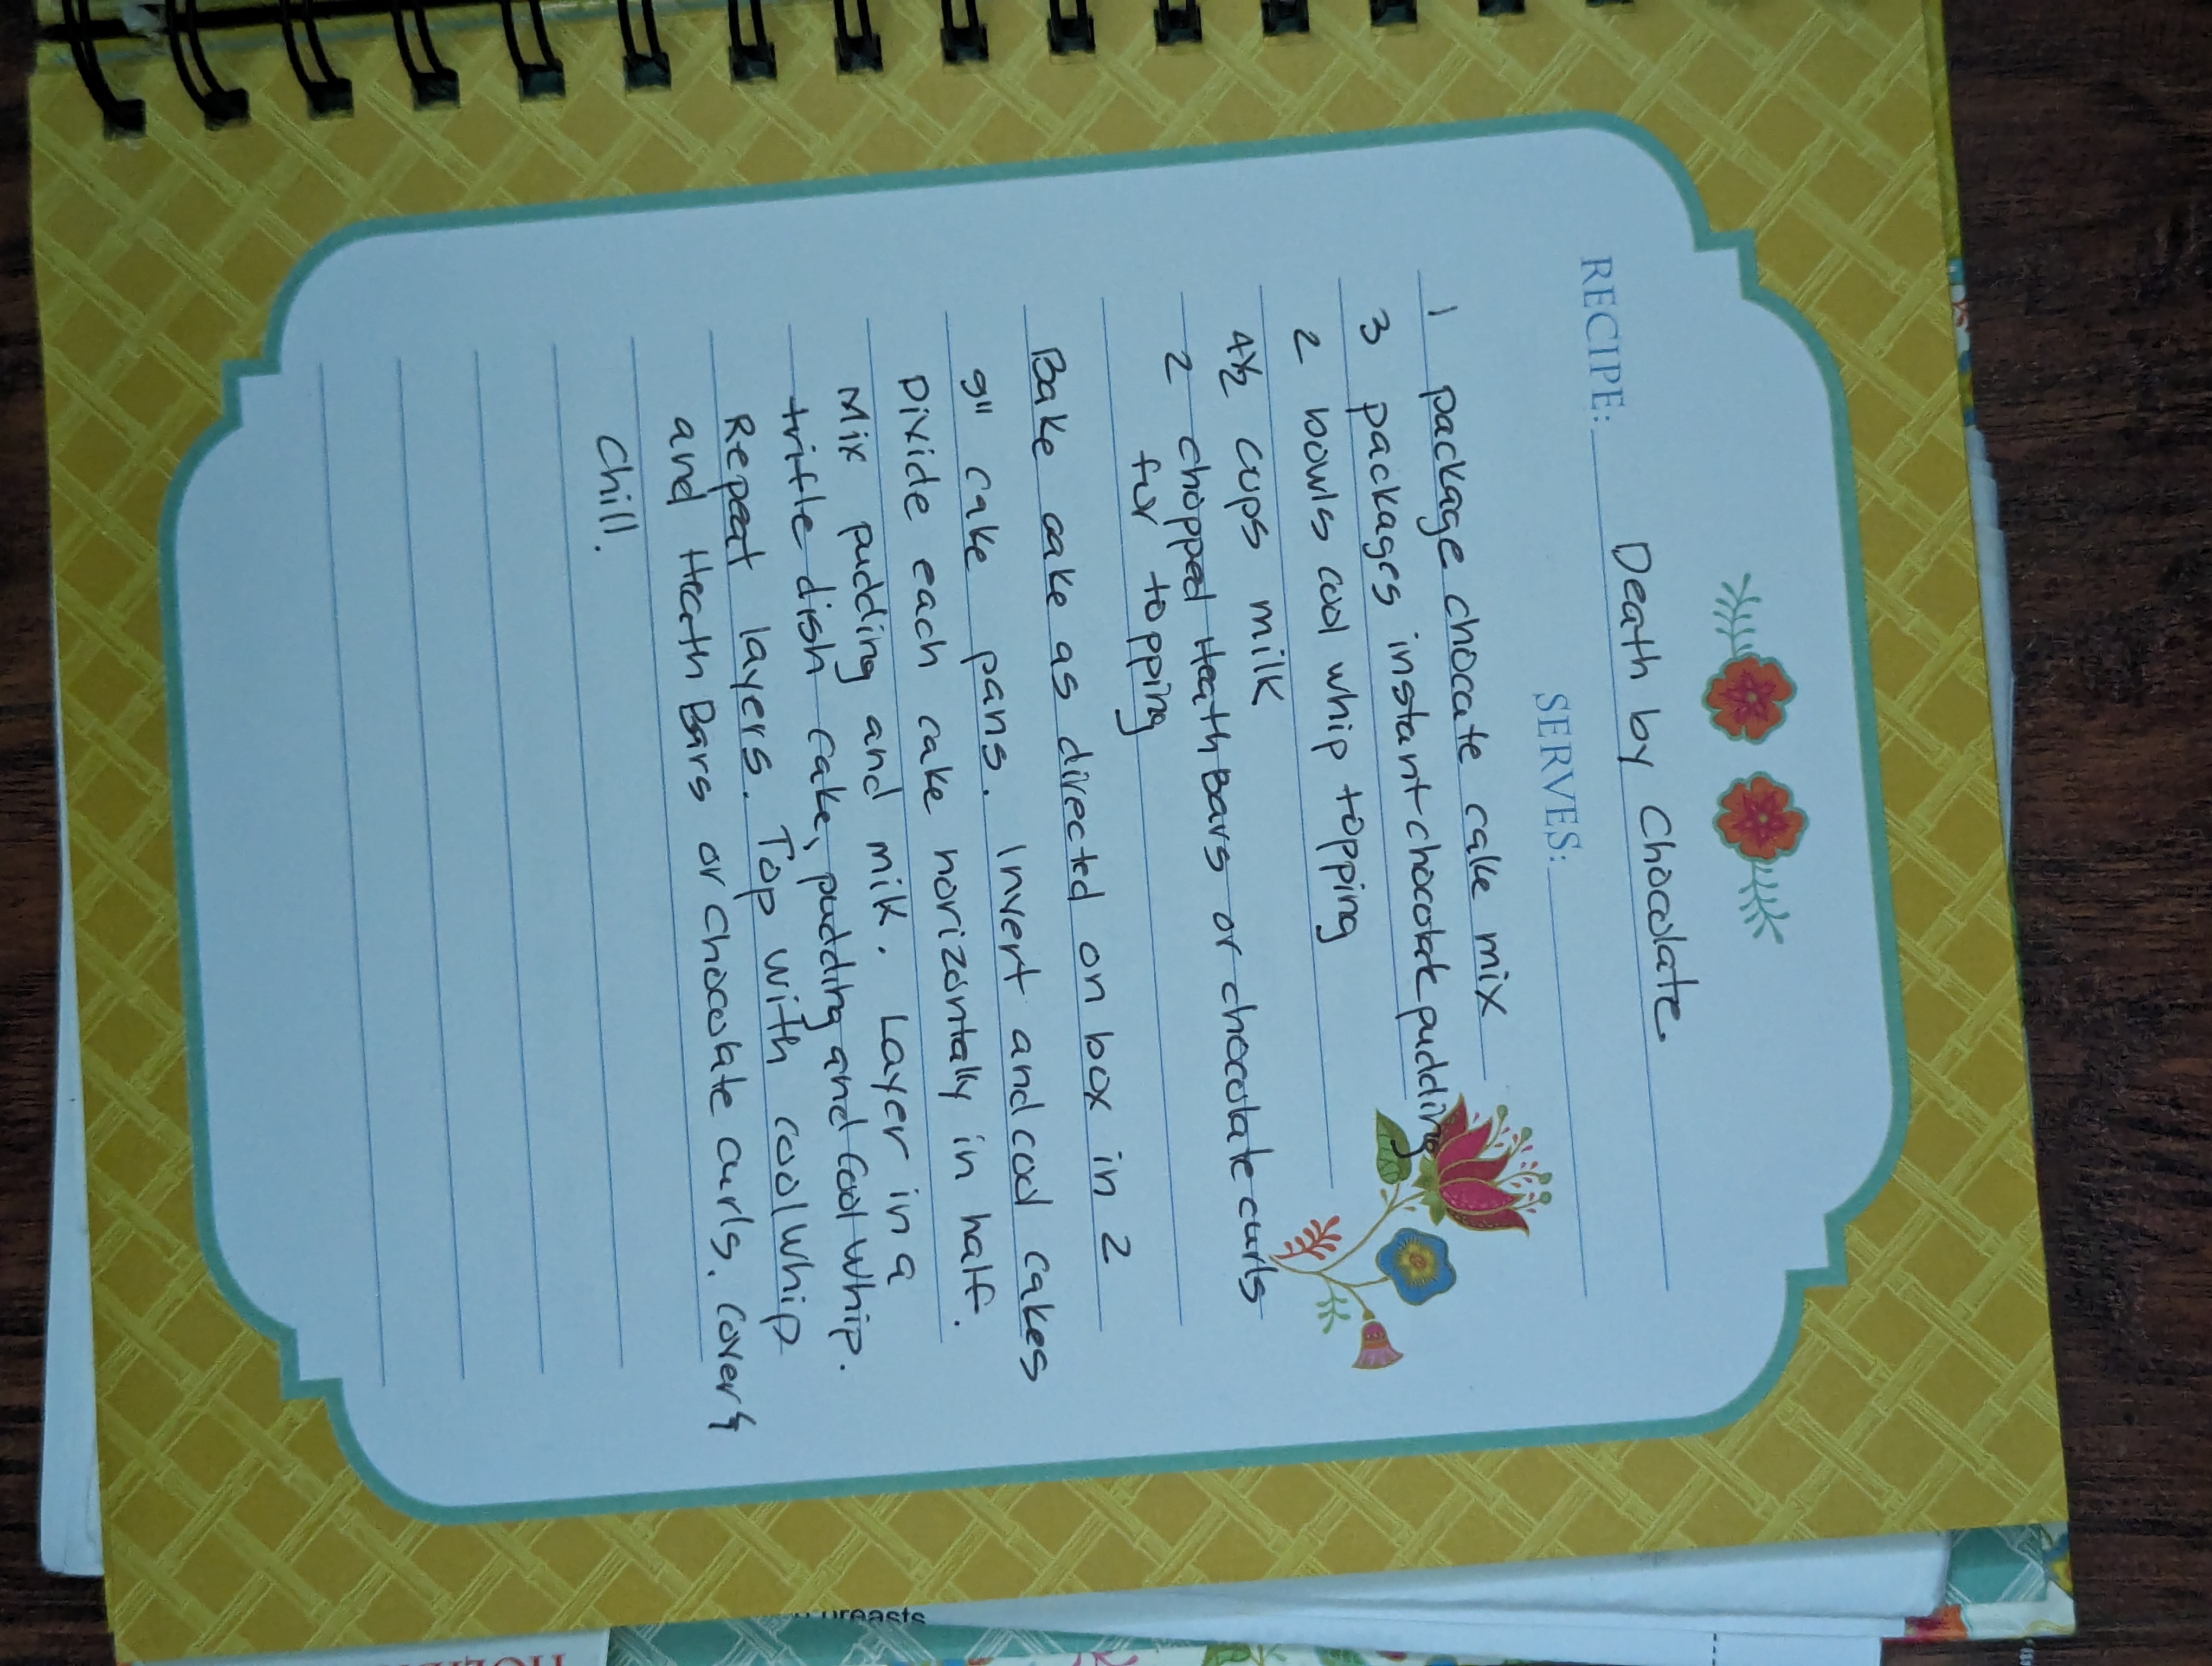 RECIPE: Death by Chocolate
SERVES:
1 package chocolate cake mix
3 packages instant chocolate pudding
2 bowls cool whip topping
4½ cups milk
2 chopped Heath Bars or chocolate curls
for topping
Bake cake as directed on box in 2
9" cake pans. Invert and cool cakes
Divide each cake horizontally in half.
Mix pudding and milk. Layer in a
trifle dish cake, pudding and Cool Whip.
Repeat layers. Top with cool whip
and Heath Bars or chocolate curls. Cover &
Chill.
breasts